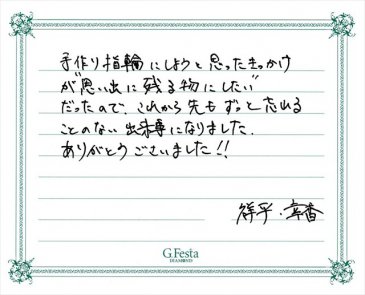 手作り指輪にしようと思ったきっかけ
が"思い出に残る物にしたい"
だったので、これから先もずっと忘れる
ことのない出来事になりました。
ありがとうございました!!
祥平・幸香
G.Festa
DIAMOND